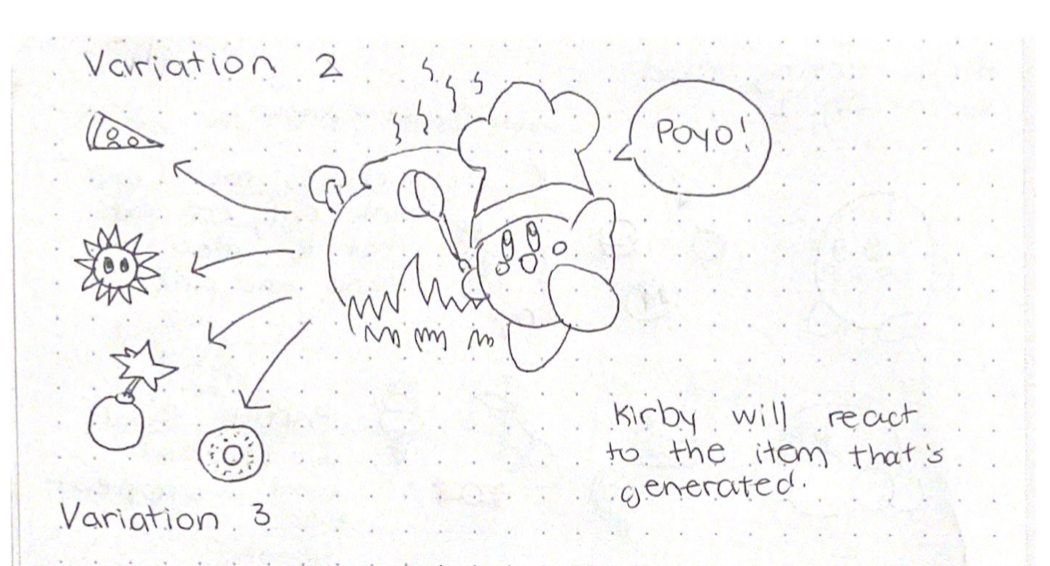 Variation 2
POYO!
Kirby will react
to the item that's
generated.
Variation 3